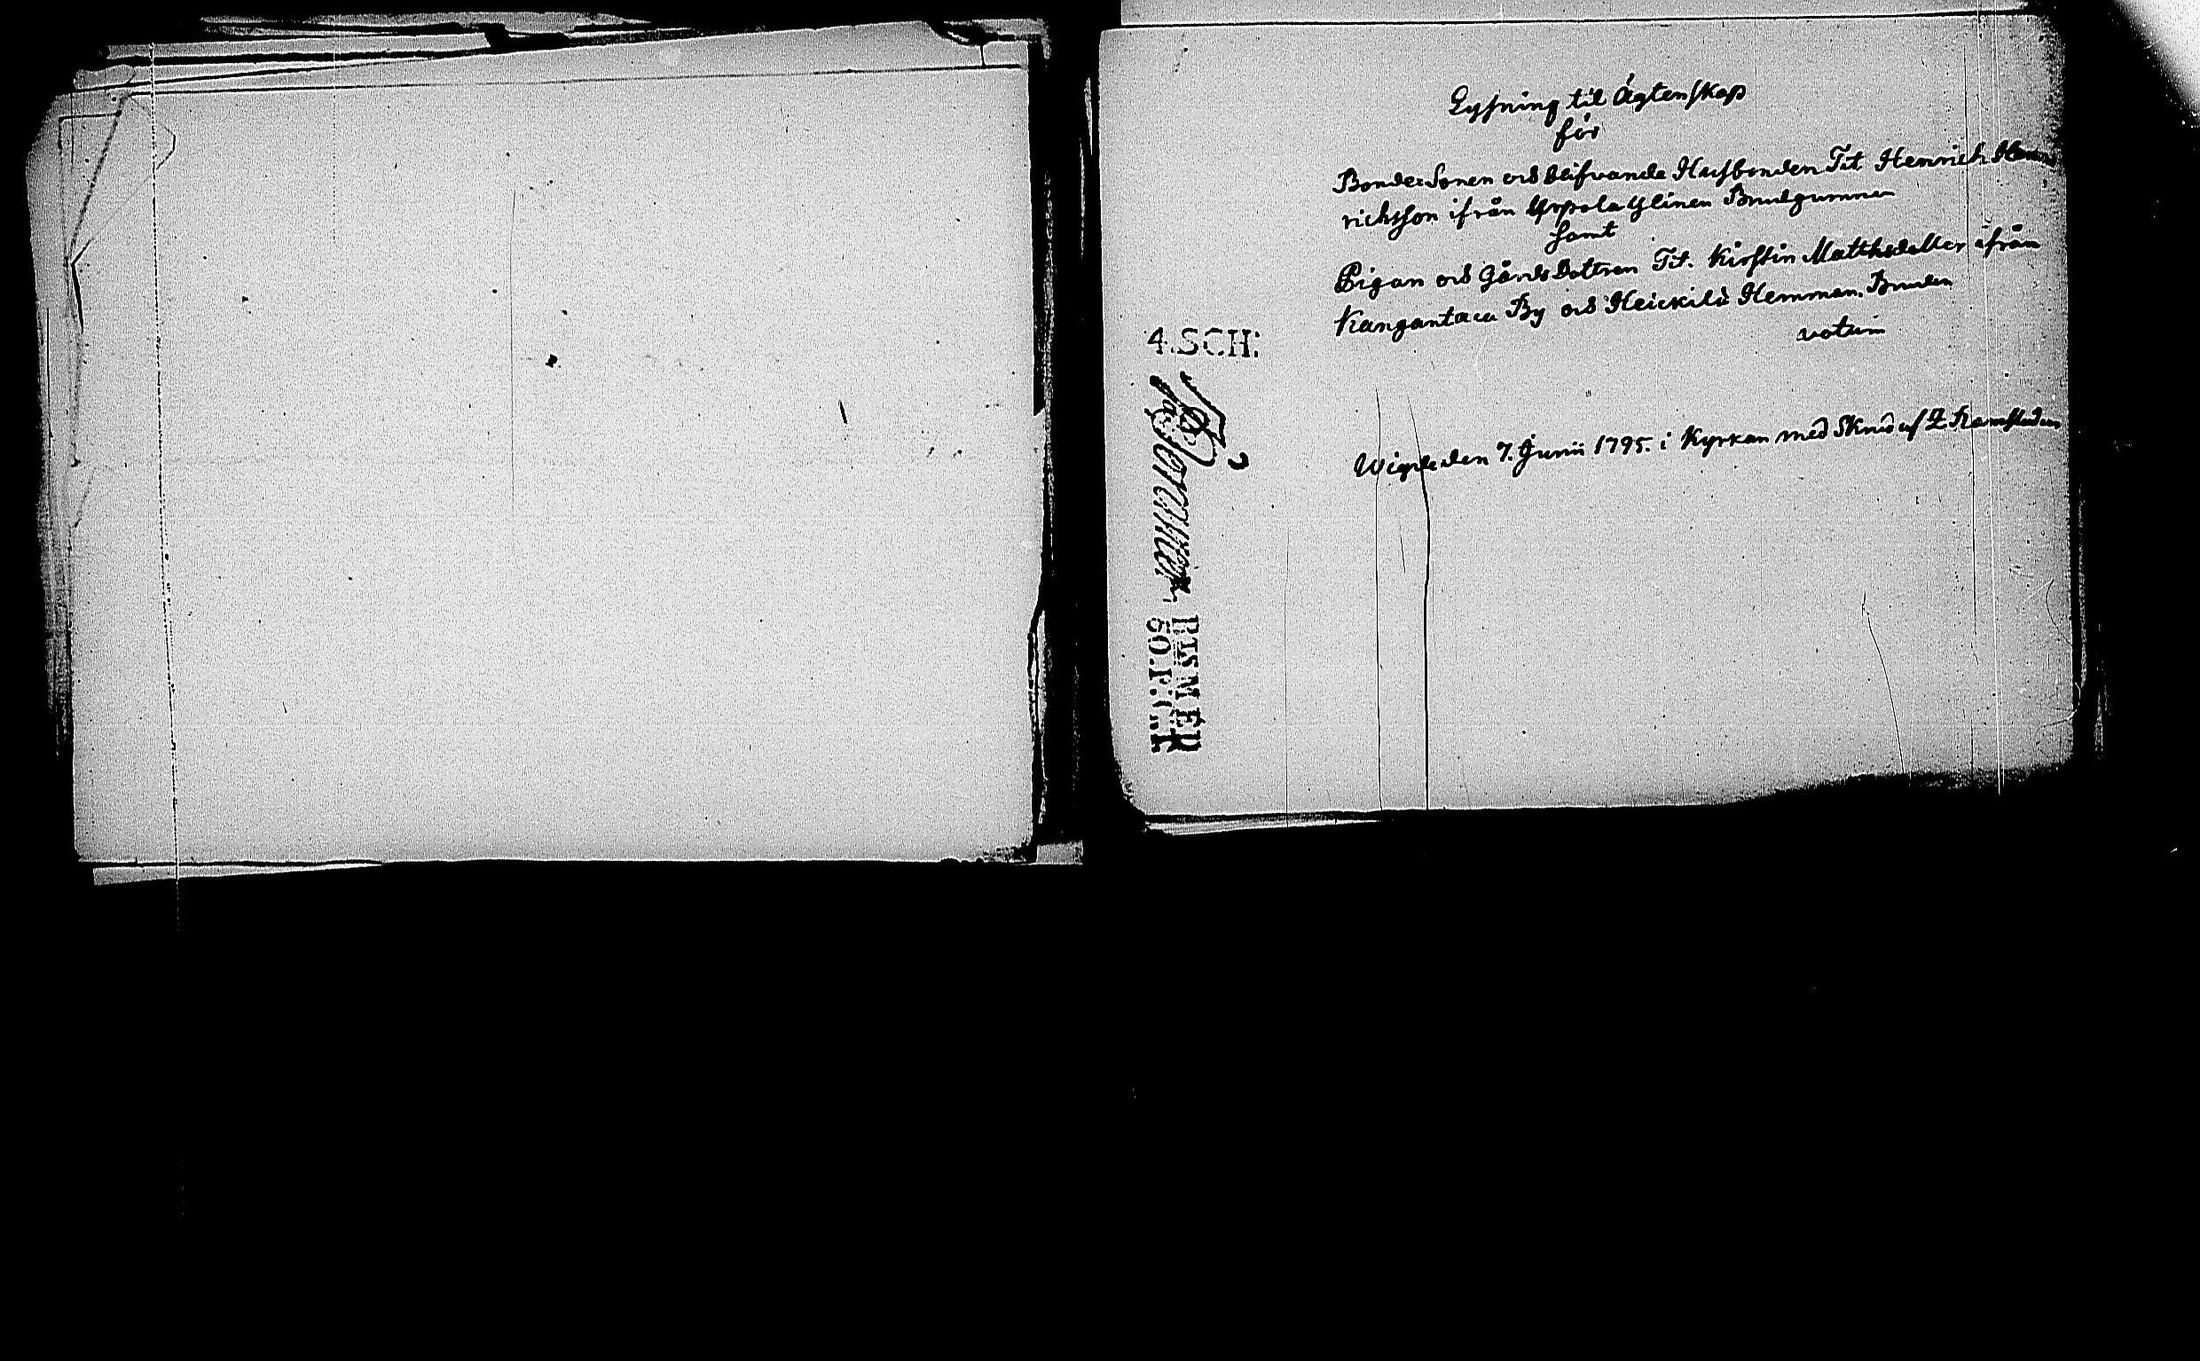 Lysning til Ägtenskap
för
Bonde Sonen och blifvande Husbonden Tit Henrich Hen
richsson ifrån Yrpola Ylinen Brudgummen
samt
Pigan och Gårds Dottren Tit. Kirstin Matthsdotter ifrån
Kangantaca By och Heickilä Hemman. Bruden
votum
Wigde den 7. Junii 1795. i Kyrkan med Skrud af
4.SCH:
SMER